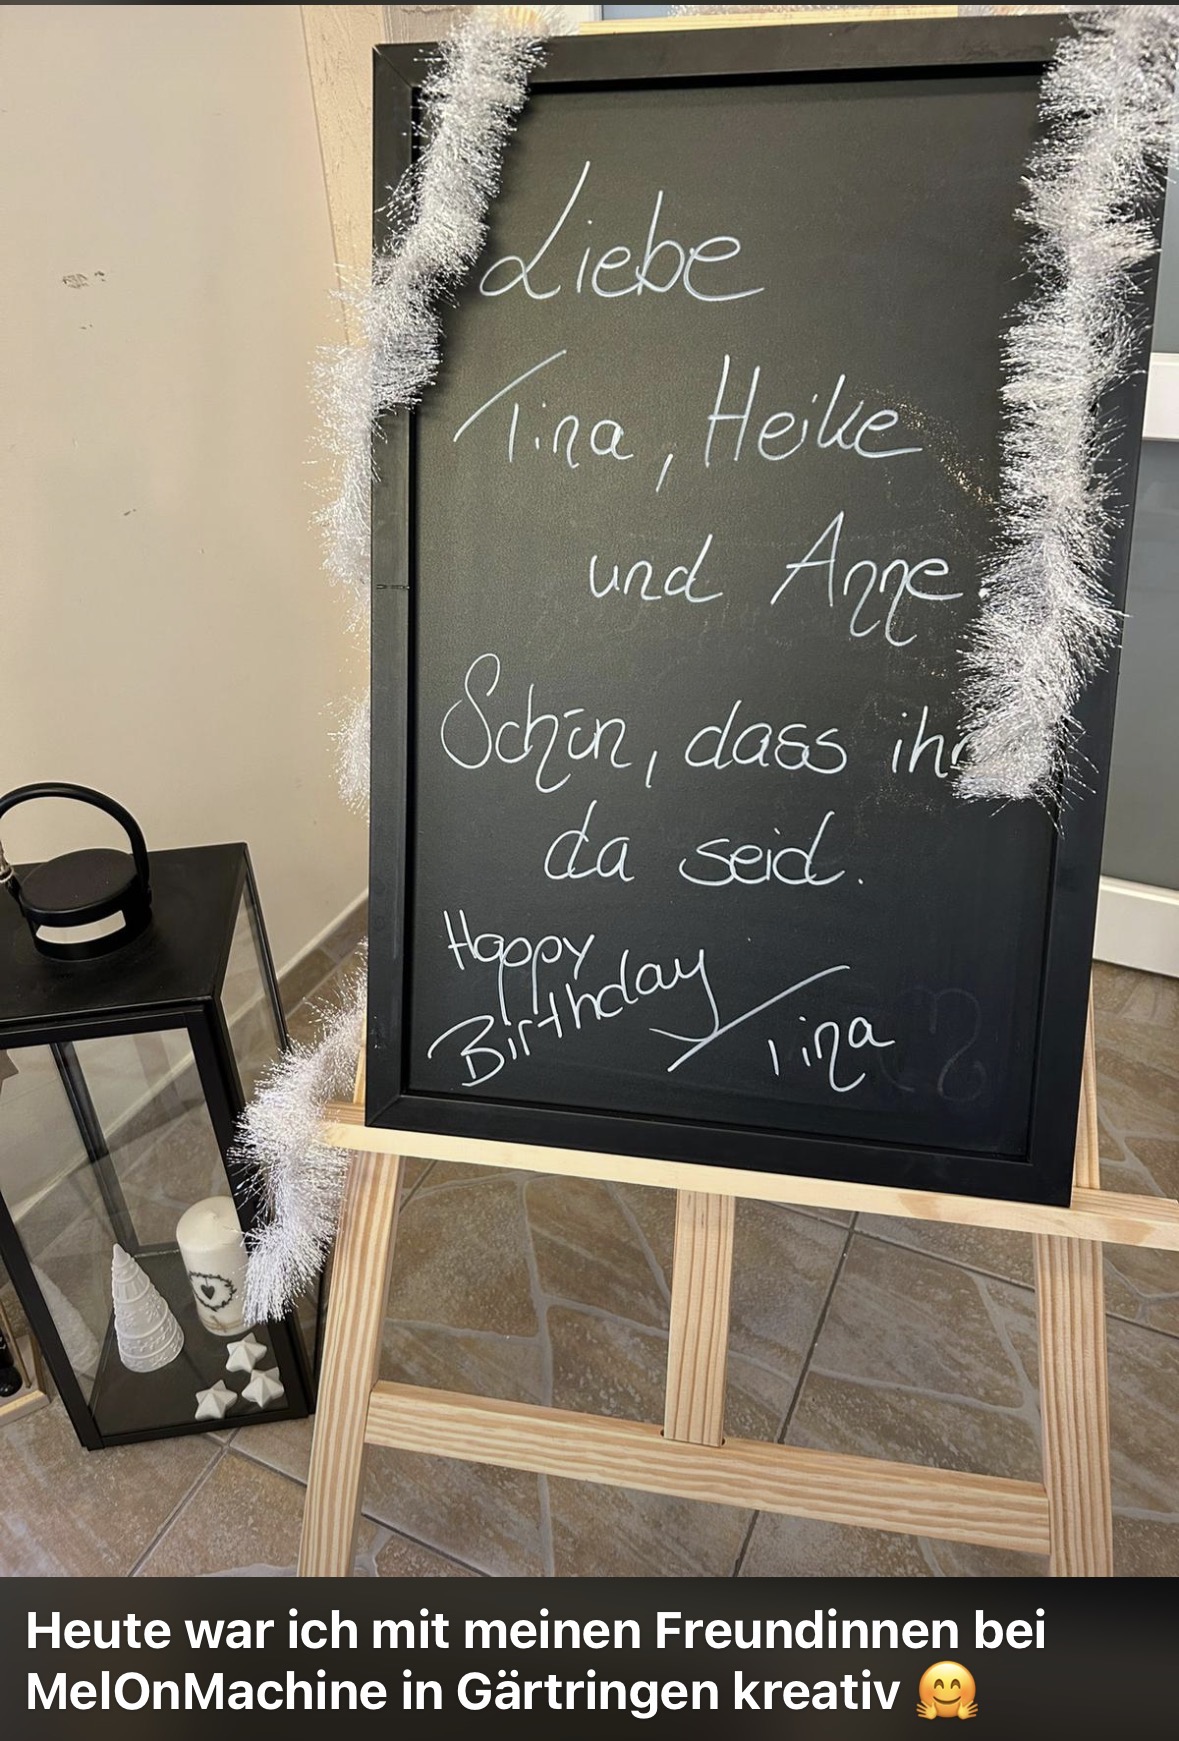 Liebe
Tina, Heike
und Anne.
Schön, dass ihr
da seid.
Happy
Birthday Tina
Heute war ich mit meinen Freundinnen bei
MelOnMachine in Gärtringen kreativ 🤗